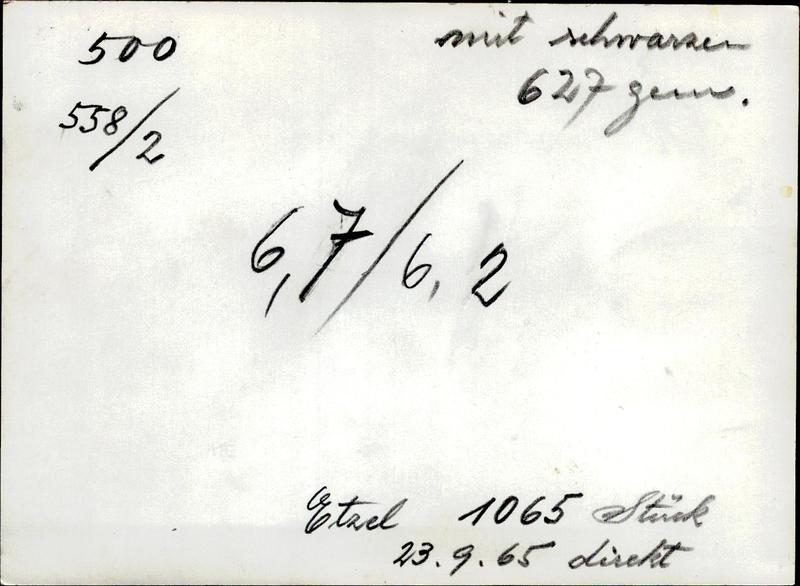 500
mit schwarzen
627 gem.
558/2
6,7/6,2
Etzel 1065 Stück
23.9.65 direkt